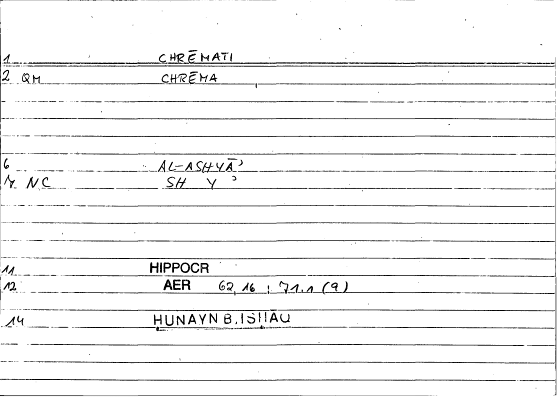 1 CHRĒMATI
2 QM CHRĒMA
6 AL-ASHYĀʾ
7 NC SH Y ʾ
11 HIPPOCR
12 AER 62,16 ; 71.1 (9)
14 HUNAYN B. ISḤĀQ